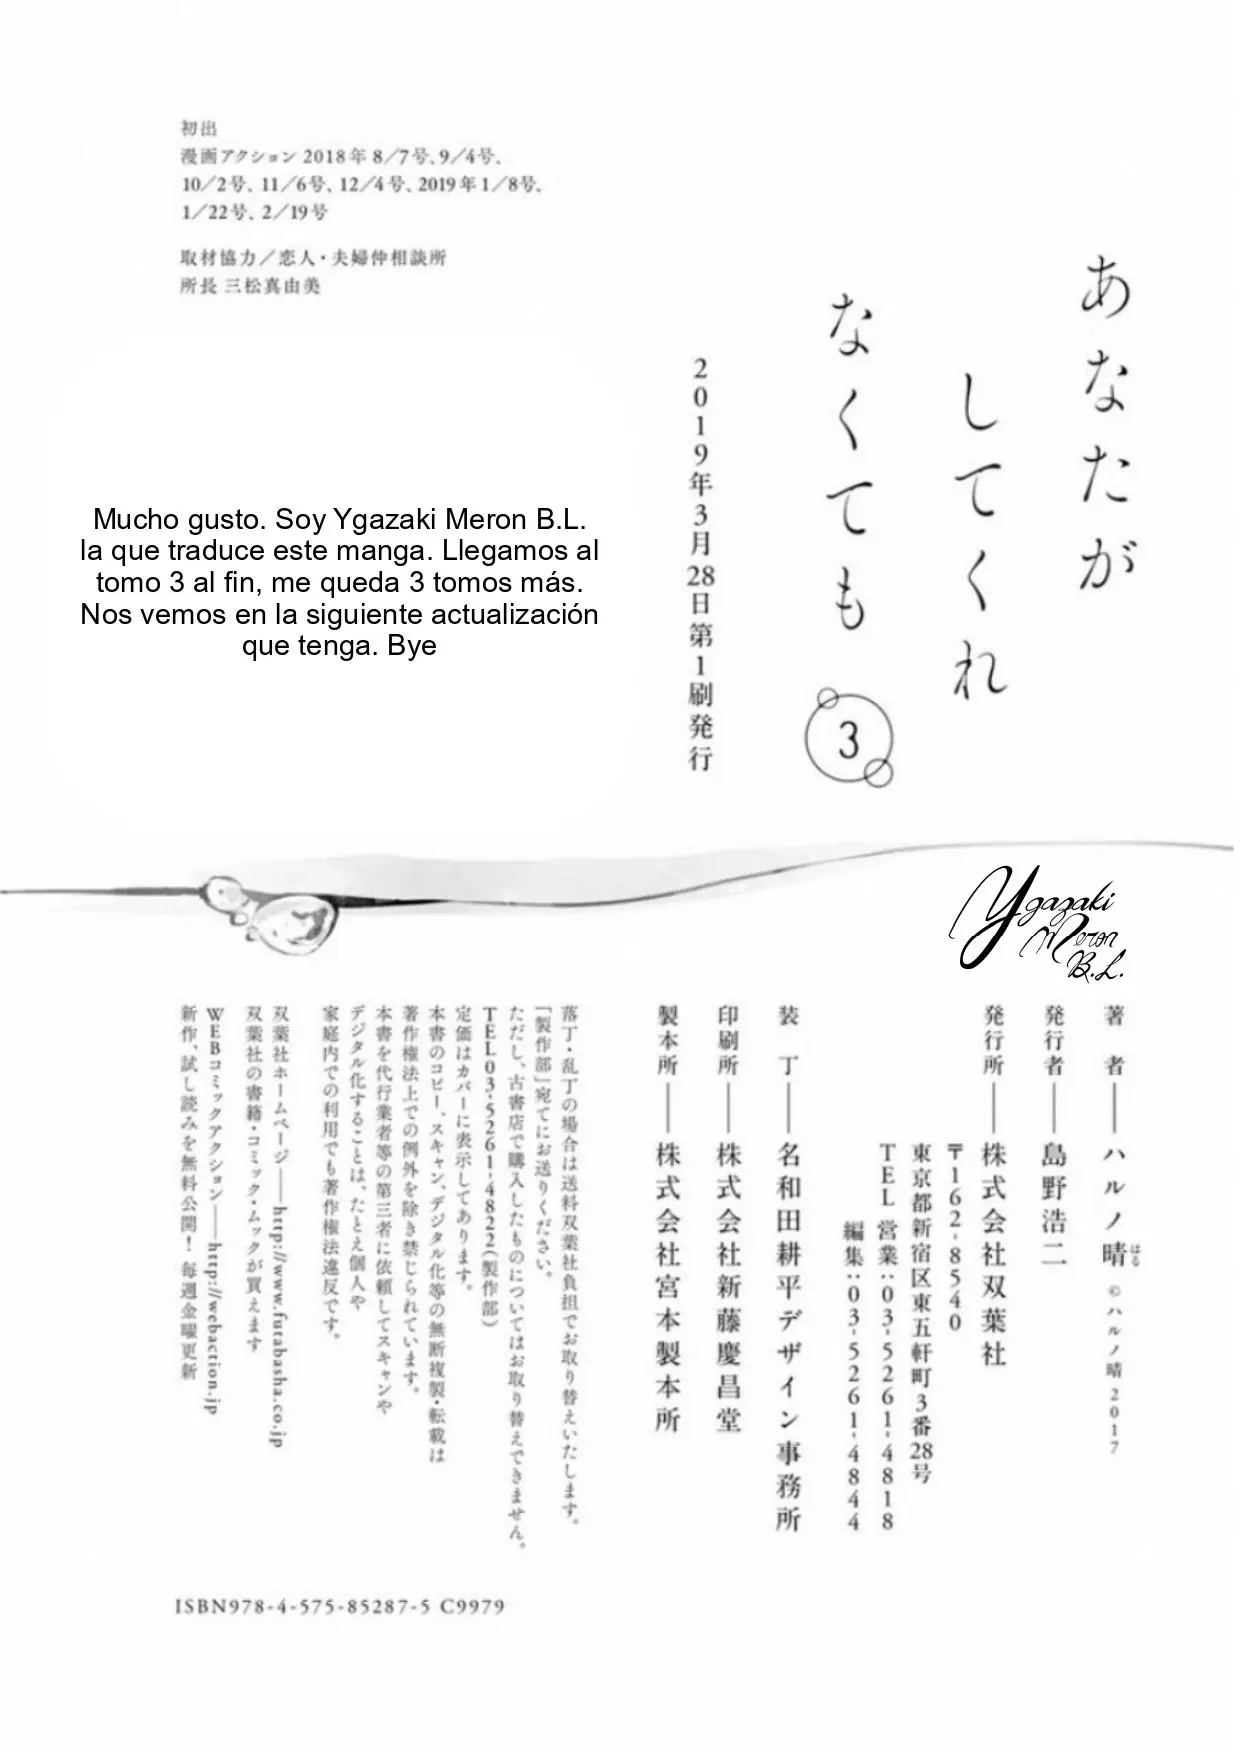 初出
漫画アクション 2018年 8／7号、9／4号、
10／2号、11／6号、12／4号、2019年 1／8号、
1／22号、2／19号
取材協力／恋人・夫婦仲相談所
所長 三松真由美
あなたが
してくれ
なくても
3
2019年3月28日第1刷発行
Mucho gusto. Soy Ygazaki Meron B.L.
la que traduce este manga. Llegamos al
tomo 3 al fin, me queda 3 tomos más.
Nos vemos en la siguiente actualización
que tenga. Bye
Ygazaki
Meron
B.L.
著　者――ハルノ晴 ©ハルノ晴 2017
はる
発行者――島野浩二
発行所――株式会社双葉社
〒162-8540
東京都新宿区東五軒町3番28号
TEL 営業:03-5261-4818
編集:03-5261-4844
装　丁――名和田耕平デザイン事務所
印刷所――株式会社新藤慶昌堂
製本所――株式会社宮本製本所
落丁・乱丁の場合は送料双葉社負担でお取り替えいたします。
「製作部」宛てにお送りください。
ただし、古書店で購入したものについてはお取り替えできません。
TEL03-5261-4822(製作部)
定価はカバーに表示してあります。
本書のコピー、スキャン、デジタル化等の無断複製・転載は
著作権法上での例外を除き禁じられています。
本書を代行業者等の第三者に依頼してスキャンや
デジタル化することは、たとえ個人や
家庭内での利用でも著作権法違反です。
双葉社ホームページ――http://www.futabasha.co.jp
双葉社の書籍・コミック・ムックが買えます
WEBコミックアクション――http://webaction.jp
新作、試し読みを無料公開！ 毎週金曜更新
ISBN978-4-575-85287-5 C9979